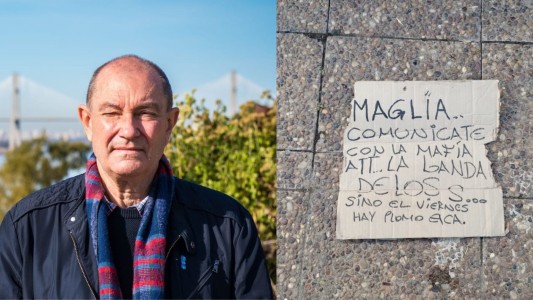 MAGLIA..
COMUNICATE
CON LA MAFIA
ATT... LA BANDA
DE LOS S...
SINO EL VIERNES
HAY PLOMO